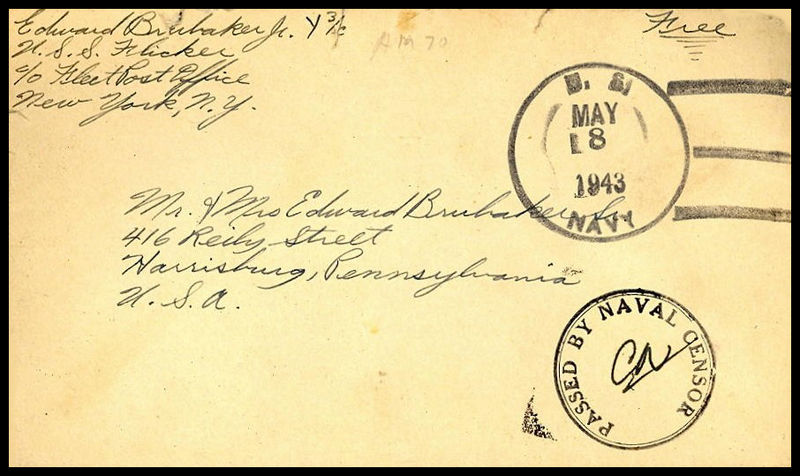 Edward Brubaker Jr. Y 3/c
U. S. S. Flicker
c/o Fleet Post Office
New York, N.Y.
AM 70
Free
U. S.
MAY
8
1943
NAVY
Mr. & Mrs Edward Brubaker Sr.
416 Reily Street
Harrisburg, Pennsylvania
U. S. A.
PASSED BY NAVAL CENSOR